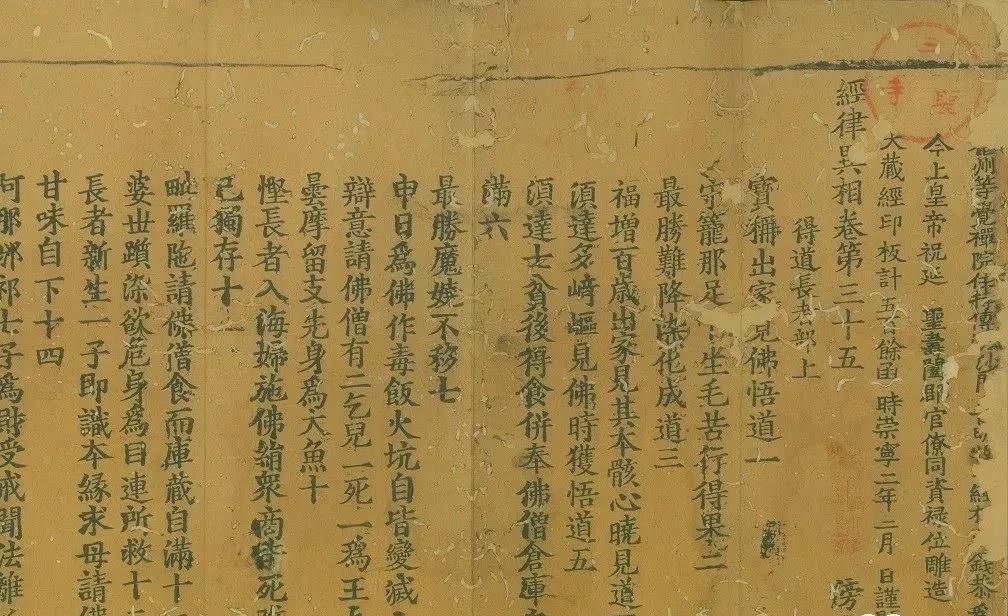 三聖寺
州等覺禪院住持傳 錢恭為
今上皇帝祝延 聖壽闔郡官僚同資祿位雕造
大藏經印板計五百餘函時崇寧二年二月 日謹
經律異相卷第三十五 滂
得道長者部上
寶稱出家見佛悟道一
守籠那足下生毛苦行得果二
最勝難降床化成道三
福增百歲出家見其本骸心曉見道
須達多崎嶇見佛時獲悟道五
須達士貧後得食併奉佛僧倉庫
滿六
最勝魔嬈不移七
申日為佛作毒飯火坑自皆變滅
辯意請佛僧有二乞兒一死一為王
曇摩留支先身為大魚十
慳長者入海婦施佛絹眾商皆死
己獨存十一
畎羅陁請佛僧食而庫藏自滿十
婆世躓染欲危身為目連所救十
長者新生一子即識本緣求母請佛
甘味自下十四
阿那邠祁七子為財受戒聞法離